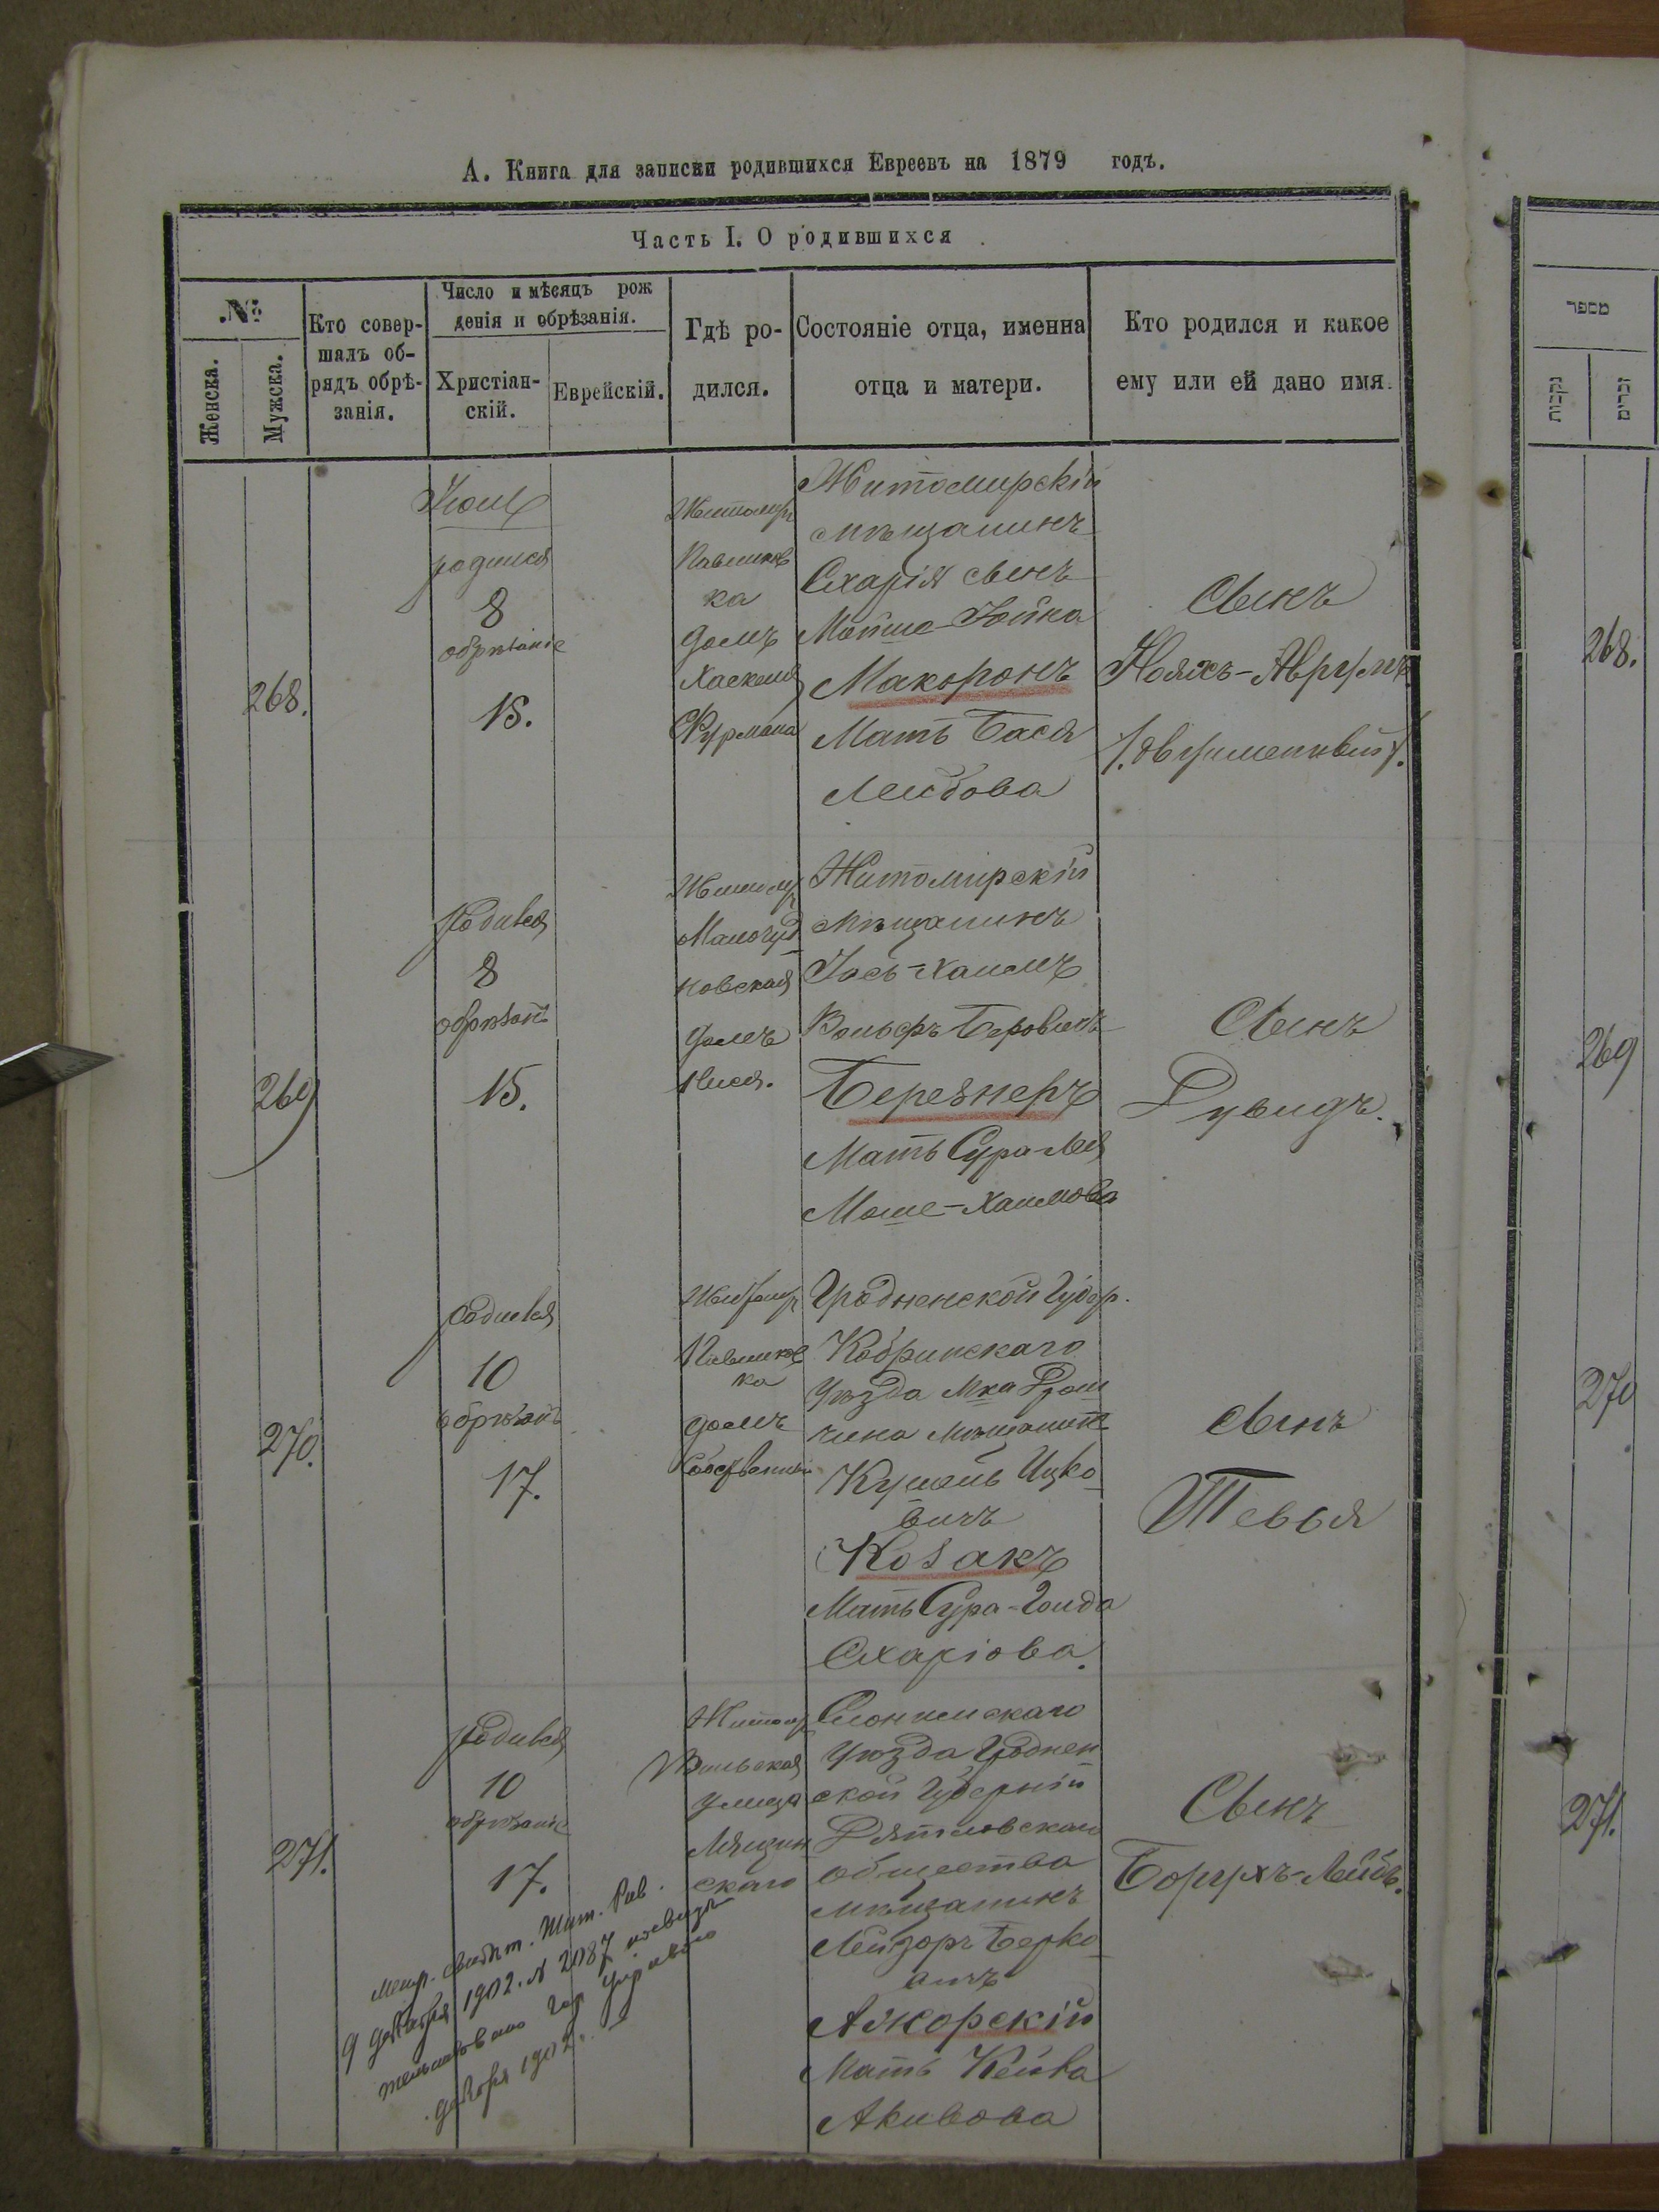 А. Книга для записки родившихся Евреевъ на 1879 годъ.
Часть I. О родившихся
№
Женска.
Мужска.
Кто совер-
шалъ об-
рядъ обрѣ-
занія.
Число и мѣсяцъ рож
денія и обрѣзанія.
Христіан-
скій.
Еврейскій.
Гдѣ ро-
дился.
Состояніе отца, именна
отца и матери.
Кто родился и какое
ему или ей дано имя.
268.
Іюль
родился
8
обрѣзаніе
15.
Житомир
Павликов
ка
домъ
Хаскеля
Фурмана
Житомирскій
мѣщанинъ
Схарія сынъ
Мойше-Іойна
Макоронъ
Мать Бася
Лейбова
Сынъ
Нояхъ-Аврумъ
/:двуименный:/.
269
Родился
8
обрѣзаніе
15.
Житомир
Малочуд
новская
домъ
Житомирскій
мѣщанинъ
Іось-Хаимъ
Вольфъ Беровичъ
Березнеръ
Мать Сура-Лея
Моше-Хаимова
Сынъ
Дувидъ.
270.
Родился
10
обрѣзаніе
17.
Житомир
Павликов
ка
домъ
Собственный
Гродненской Губер.
Кобринскаго
уѣзда Мка Дрогі
чина мѣщанинъ
Ицко-
вичъ
Козакъ
Мать Сура-Голда
Схаріова.
сынъ
Тевья
271.
Родился
10
обрѣзаніе
17.
Житомир
Вильская
улица
скаго
Слонимскаго
уѣзда Гроднен
ской Губерніи
Дятловскаго
общества
мѣщанинъ
Лейзоръ Берко-
вичъ
Ажорскій
Мать Кейла
Акивова
Сынъ
Борухъ-Лейбъ.
Метр. свидѣт. Жит. Рав.
9 декабря 1902. N 2087 засвидѣ
тельствовано Гор. Управою
декабря 1902 г.
מספר
נקבות
זכרים
268.
269
270
271.